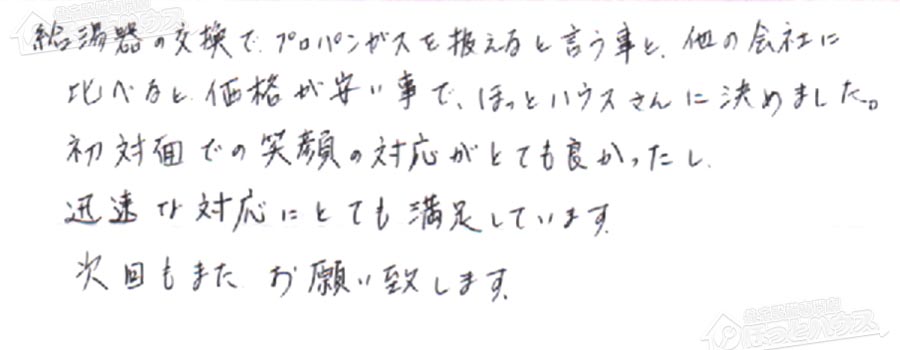 給湯器の交換で、プロパンガスを扱えると言う事と、他の会社に
比べると、価格が安い事で、ほっとハウスさんに決めました。
初対面での笑顔の対応がとても良かったし、
迅速な対応にとても満足しています。
次回もまた お願い致します。
ほっとハウス